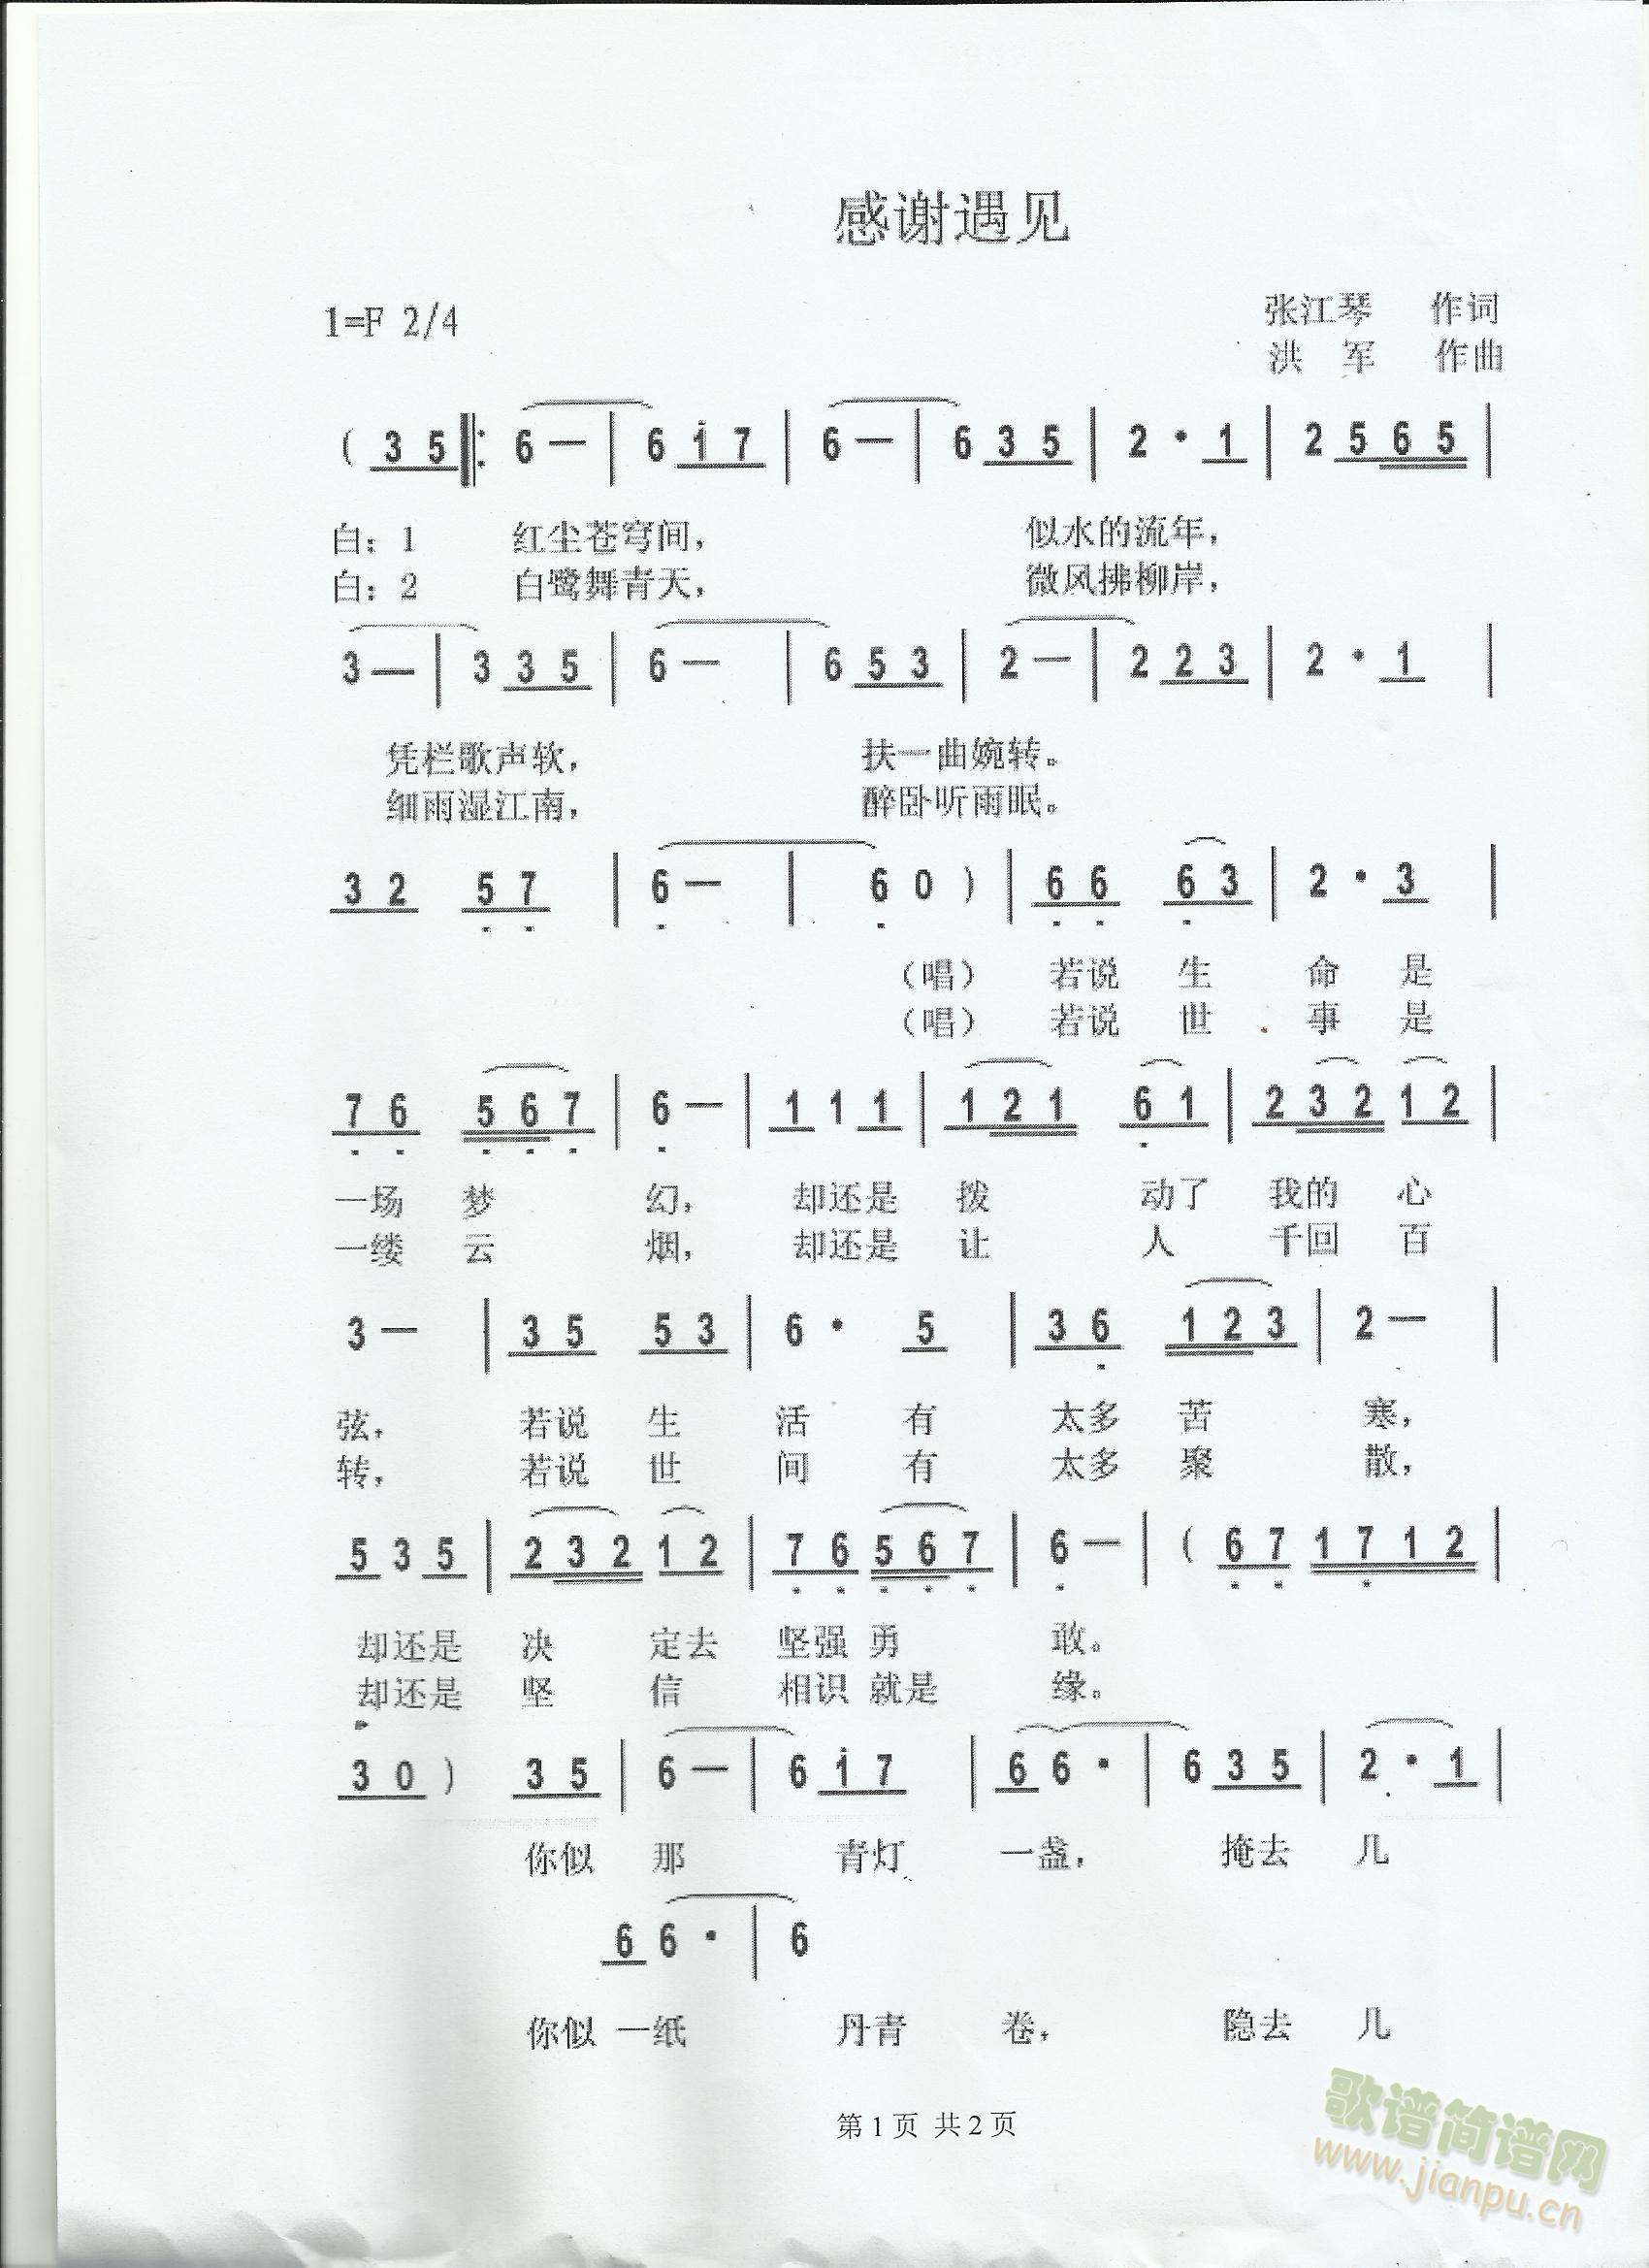 感谢遇见
1=F 2/4
张江琴 作词
洪 军 作曲
( 3 5 ‖: 6 — | 6 1 7 | 6 — | 6 3 5 | 2 · 1 | 2 5 6 5 |
白：1 红尘苍穹间， 似水的流年，
白：2 白鹭舞青天， 微风拂柳岸，
3 — | 3 3 5 | 6 — | 6 5 3 | 2 — | 2 2 3 | 2 · 1 |
凭栏歌声软， 扶一曲婉转。
细雨湿江南， 醉卧听雨眠。
3 2 5 7 | 6 — | 6 0 ) | 6 6 6 3 | 2 · 3 |
（唱） 若说 生 命 是
（唱） 若说 世 事 是
7 6 5 6 7 | 6 — | 1 1 1 | 1 2 1 6 1 | 2 3 2 1 2 |
一场 梦 幻， 却还是 拨 动了 我的 心
一缕 云 烟， 却还是 让 人 千回 百
3 — | 3 5 5 3 | 6 · 5 | 3 6 1 2 3 | 2 — |
弦， 若说 生 活 有 太多 苦 寒，
转， 若说 世 间 有 太多 聚 散，
5 3 5 | 2 3 2 1 2 | 7 6 5 6 7 | 6 — | ( 6 7 1 7 1 2 |
却还是 决 定去 坚强 勇 敢。
却还是 坚 信 相识 就是 缘。
3 0 ) 3 5 | 6 — | 6 1 7 | 6 6 · | 6 3 5 | 2 · 1 |
你似 那 青灯 一盏， 掩去 几
6 6 · | 6
你似 一纸 丹青 卷， 隐去 几
第 1 页 共 2 页
歌谱简谱网
www.jianpu.cn